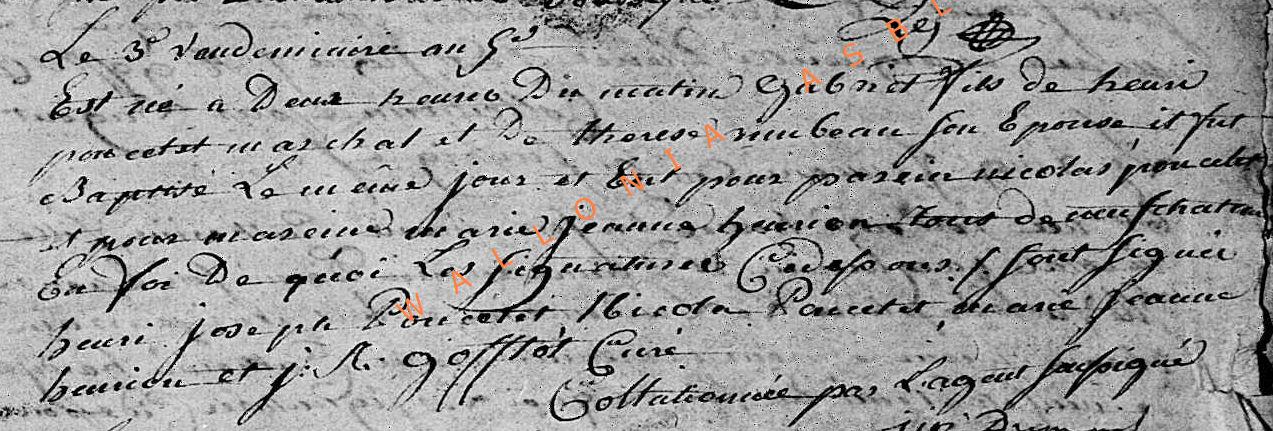 Le 3e Vandemiaire an 5e
Est né a Deux heures Du matin Gabriel fils de henri
poncelet marchal et de therese mubeau son Epouse il fut
Baptisé Le même jour et Eut pour parein nicolas poncelet
et pour mareine marie jeanne henrion tous de neufchateau
En foi De quoi Les signatures Cidessous / sont signés
henri joseph Poncelet Nicola Poncelet marie jeanne
henrion et j: N. gofflot Curé
Coltationnée par L'agent sussigné
WALLONIA ASBL